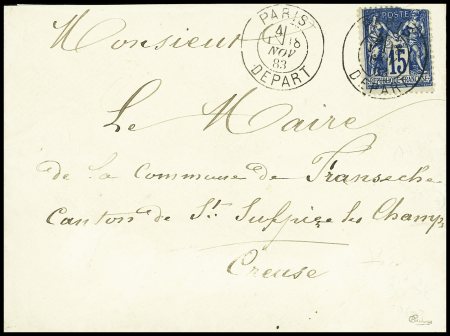 Monsieur
PARIS
18
NOV
83
DEPART
POSTE
15
DEPART
Le Maire
de la Commune de Transèche
Canton de St. Sulpice les Champs
Creuse